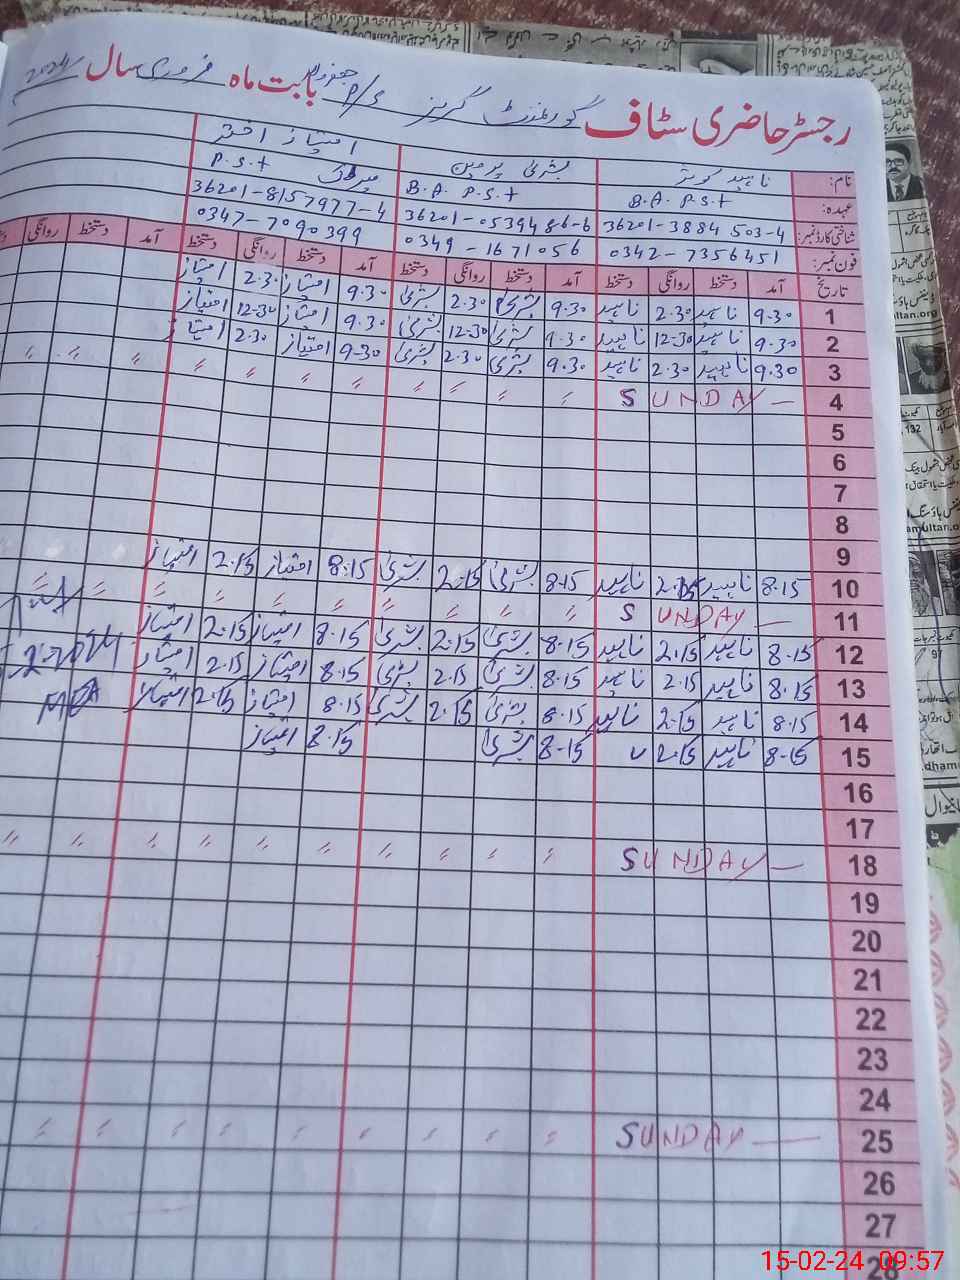 رجسٹر حاضری سٹاف گورنمنٹ گرلز P/S بابت ماہ فروری سال 2024
نام: ناہید کوثر بشریٰ پروین امتیاز اختر
عہدہ: B.A. P.S.t B.A. P.S.t میٹرک P.S.t
شناختی کارڈ نمبر: 36201-3884503-4 36201-0539486-6 36201-8157977-4
فون نمبر: 0342-7356451 0349-1671056 0347-7090399
تاریخ آمد دستخط روانگی دستخط آمد دستخط روانگی دستخط آمد دستخط روانگی دستخط آمد دستخط روانگی
1 9.30 ناہید 2.30 ناہید 9.30 بشریٰ 2.30 بشریٰ 9.30 امتیاز 2.30 امتیاز
2 9.30 ناہید 12-30 ناہید 9.30 بشریٰ 12-30 بشریٰ 9.30 امتیاز 12-30 امتیاز
3 9.30 ناہید 2.30 ناہید 9.30 بشریٰ 2.30 بشریٰ 9-30 امتیاز 2.30 امتیاز
4 SUNDAY — 〃 〃 〃 〃 〃 〃 〃 〃 〃 〃 〃
5
6
7
8
9
10 8.15 ناہید 2.15 ناہید 8.15 بشریٰ 2.15 بشریٰ 8.15 امتیاز 2.15 امتیاز
11 SUNDAY — 〃 〃 〃 〃 〃 〃 〃 〃 〃 〃
12 8.15 ناہید 2.15 ناہید 8.15 بشریٰ 2.15 بشریٰ 8.15 امتیاز 2.15 امتیاز
13 8.15 ناہید 2.15 ناہید 8.15 بشریٰ 2.15 بشریٰ 8.15 امتیاز 2.15 امتیاز
14 8.15 ناہید 2.15 ناہید 8.15 بشریٰ 2.15 بشریٰ 8.15 امتیاز 2.15 امتیاز
MEA
15 8-15 ناہید 2.15 8-15 بشریٰ 8.15 امتیاز
16
17
18 SUNDAY — 〃 〃 〃 〃 〃 〃 〃 〃 〃 〃
19
20
21
22
23
24
25 SUNDAY — 〃 〃 〃 〃 〃 〃 〃 〃 〃
26
27
28
15-02-24 09:57